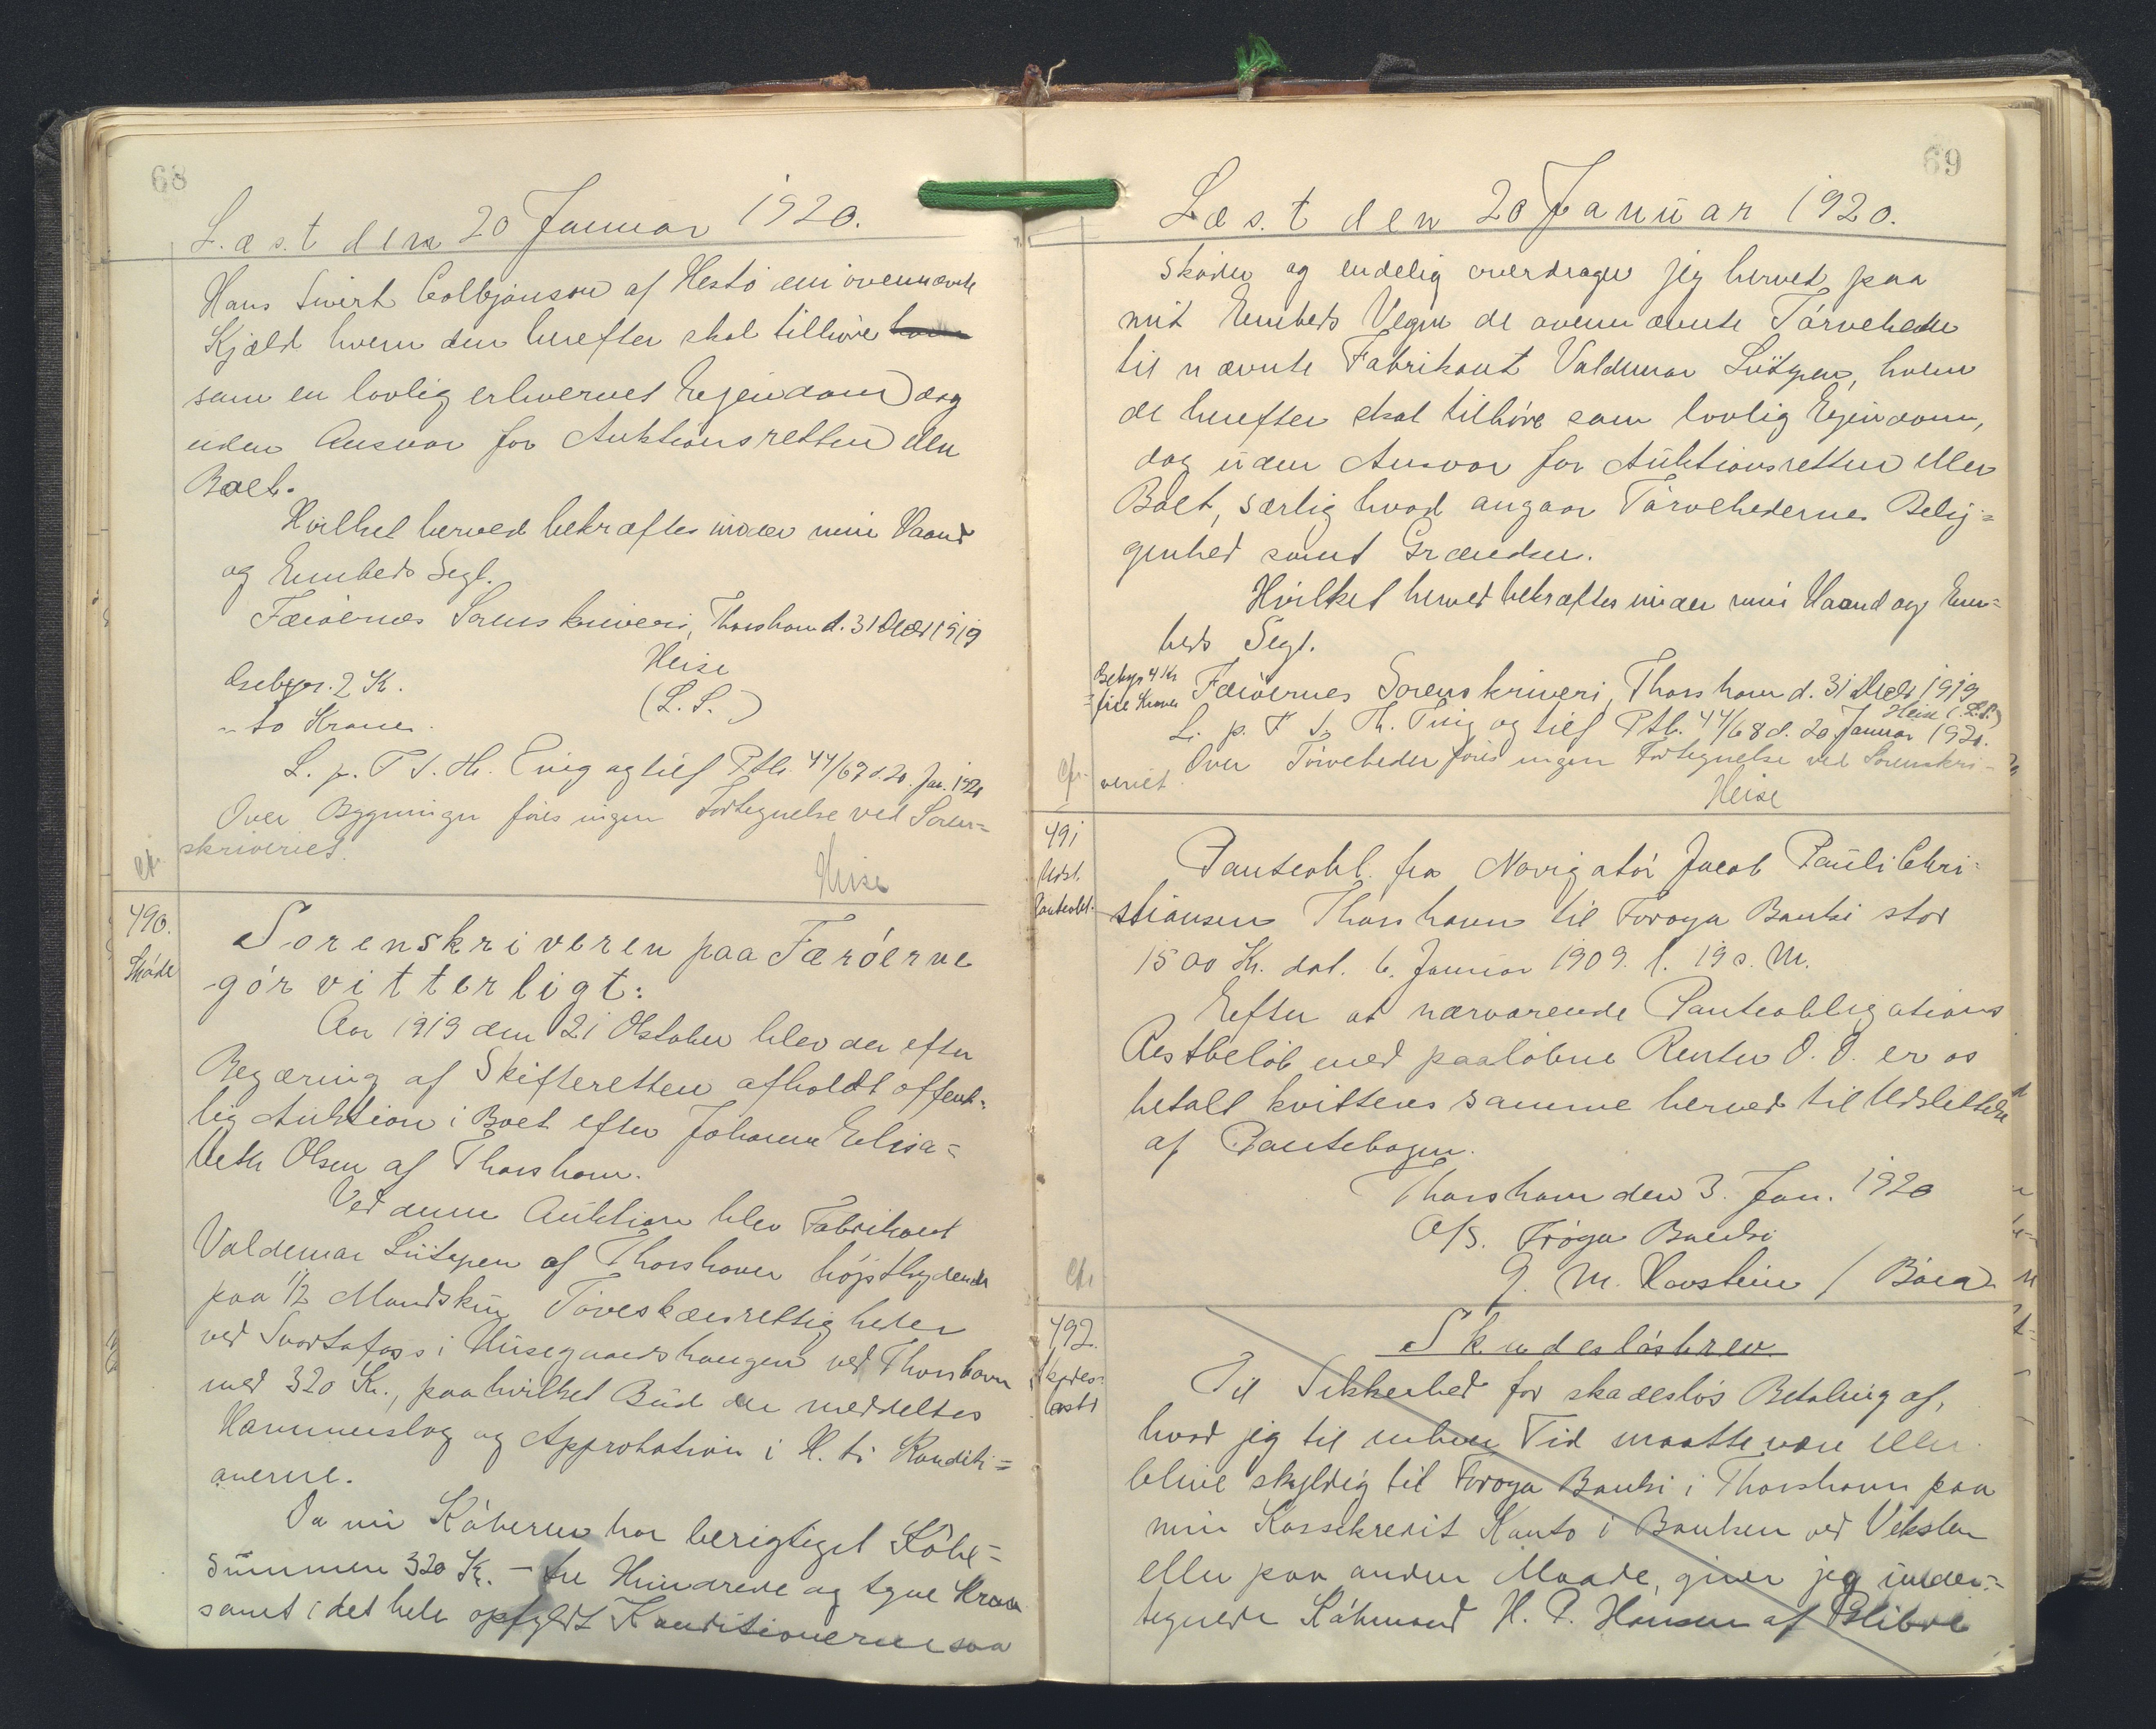 68
Læst den 20 Januar 1920.
Hans Sivert Colbjönson af Hestö em ovennævnte
Kjæld hvem den herefter skal tilhöre
som en lovlig erhvervet Ejendom dog
uden Ansvar for Auktionsretten eller
Boet.
Hvilket herved bekræftes under min Haand
og Embeds Segl.
Færöernes Sorenskriveri, Thorshavn d. 31 Decbr 1919
Heise
Gebyr. 2 Kr.
(L. S.)
- to Kroner.
L. p. F. S. Th. Ting og tilf Ptb. 44/67 d. 20. Jan. 1920
Over Bygninger föres ingen Fortegnelse ved Soren=
skriveriet.
Heise
cfr.
490.
Sköde
Sorenskriveren paa Færöerne
gör vitterligt:
Aar 1919 den 21 Oktober blev der efter
Begæring af Skifteretten afholdt offent=
lig Auktion i Boet efter Johanne Elisa=
beth Olsen af Thorshavn.
Ved denne Auktion blev Fabrikant
Valdemar Lützen af Thorshavn höjstbydende
paa 1/2 Mandskur Törveskærsrettigheder
ved Svartafoss i Husegaardshaugen ved Thorshavn
med 320 Kr., paa hvilket Bud der meddeltes
Hammerslag og Approbation i H. t. Konditi=
onerne.
Da nu Köberen har berigtiget Köbe=
summen 320 Kr. - tre Hundrede og tyve Kroner
samt i det hele opfyldt Konditionerne saa
69
Læst den 20 Januar 1920.
sköder og endelig overdrager jeg herved paa
mit Embeds Vegne de ovennævnte Törveheder
til nævnte Fabrikant Valdemar Lützen, hvem
de herefter skal tilhöre som lovlig Ejendom,
dog uden Ansvar for Auktionsretten eller
Boet, særlig hvad angaar Törvehedernes Belig=
genhed samt Grændser.
Hvilket herved bekræftes under min Haand og Em=
beds Segl.
Gebyr 4 Kr
= fire Kroner
Færöernes Sorenskriveri, Thorshavn d. 31 Decbr 1919
Heise (L.S.)
L. p. F. S. Th. Ting og tilf Ptb. 44/68 d. 20 Januar 1920.
Over Törveheder föres ingen Fortegnelse ved Sorenskri=
cfr.
veriet
Heise
491
Udsl.
Panteobl.
Panteobl. fra Navigatör Jacob Pauli Chri=
stiansen Thorshavn til Foroya Banki stor
1500 Kr. dat. 6. Januar 1909. l. 19 s. M.
Efter at nærværende Panteobligations
Restbelöb med paalöbne Renter D. D. er os
betalt kvitteres samme herved til Udslettelse
af Pantebogen.
Thorshavn den 3. Jan. 1920
A/S. Fröya Banki
J. M. Havstein / Böea
cfr.
492.
Skades-
löst
Skadeslösbrev.
Til Sikkerhed for skadeslös Betaling af,
hvad jeg til enhver Tid maatte være eller
blive skyldig til Foroya Banki i Thorshavn paa
min Kassekredit Konto i Banken ved Veksler
eller paa anden Maade, giver jeg under=
tegnede Köbmand H. P. Hansen af